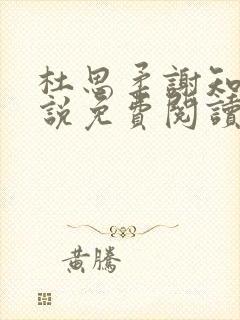 杜思柔謝知
說免費閱讀
黃騰